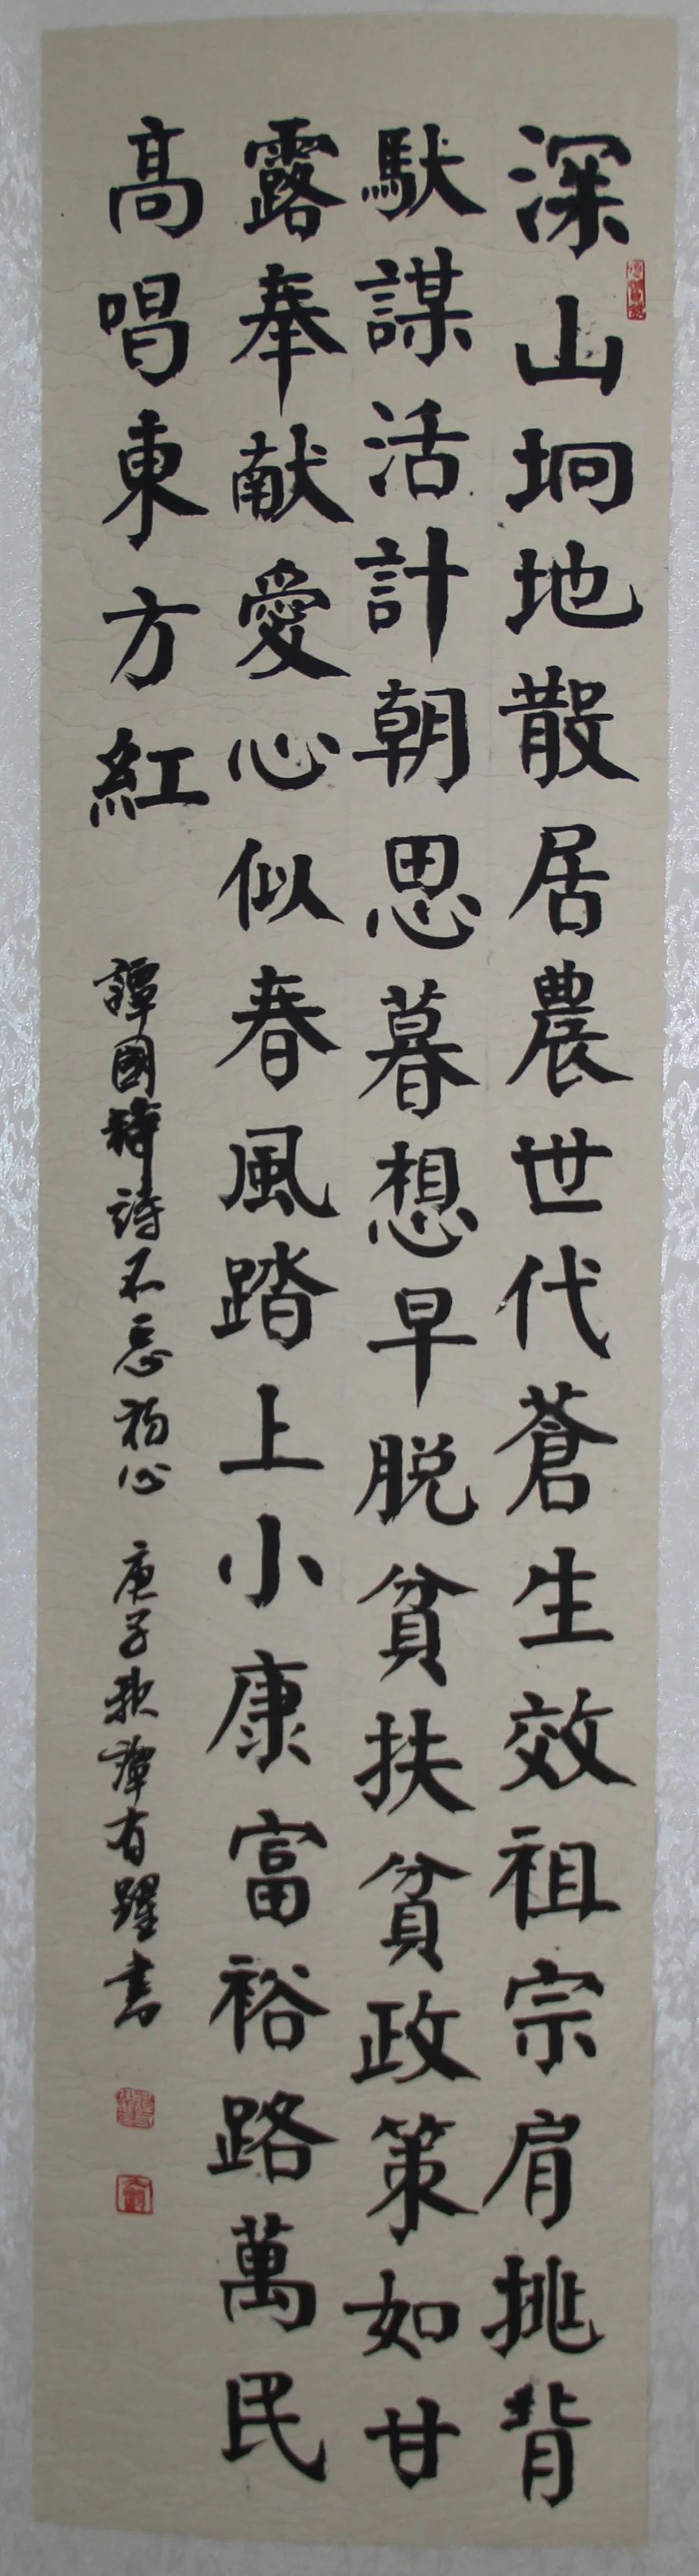 深山坰地散居農世代蒼生效祖宗肩挑背
馱謀活計朝思暮想早脱貧扶貧政策如甘
露奉献愛心似春風踏上小康富裕路萬民
高唱東方紅
譚國詩不忘初心 庚子秋譚有躍書